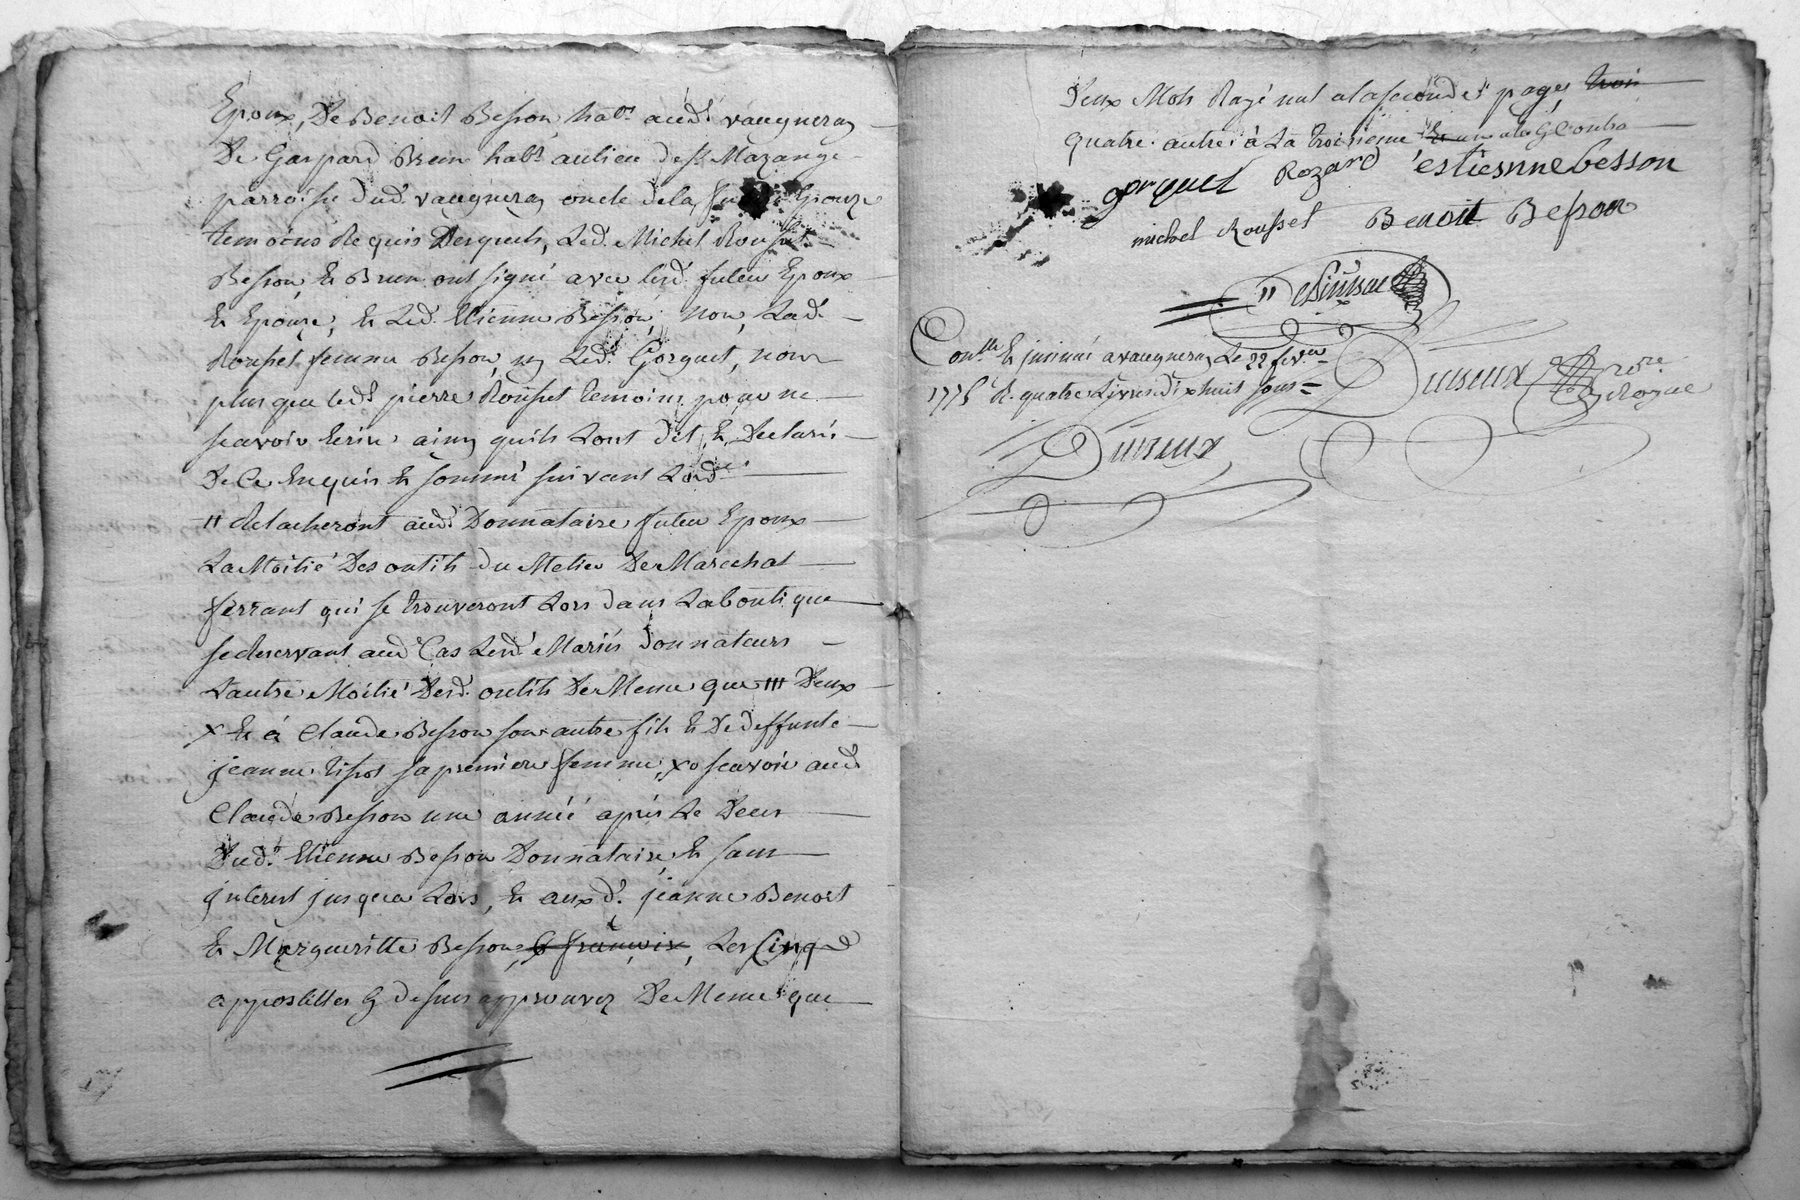 Epoux, De Benoit Besson habt. aud. vaugneray
De Gaspard Brun habt. au lieu de Mazange
parroisse dud. vaugneray oncle dela Epouze
temoins Requis Desquels, Led. Michel Rousset
Besson, & Brun ont signé avec lesd. futeu Epoux
& Epouze, & Led. Etienne Besson, Non Lad.
Rousset femme Besson, ny Led. Gorguet, non
plus que led. pierre Rousset temoins, pour ne
scavoir Ecrire ainsy quils Lont dit & Declaré
De Ce Enquis & sommé suivant Lord.e
# delacheront aud. Donnataire futeu Epoux
La Moitié Des outils du Metier De Marechal
ferrant qui se trouveront Lors dans La boutique
se deservant aud Cas Lesd. Mariés Donnateurs
Lautre Moitié Desd. outils De Meme que ### Deux
x & à Claude Besson son autre fils & De deffunte
jeanne tissot sa premiere femme, xo scavoir aud
Claude Besson une année après Le Deces
Dud. Etienne Besson Donnataire & sans
jnterest jusques a Lors, & aux d. jeanne Benoist
& Margueritte Besson, & françoise, Les Cinq
appostilles Cy dessus approuvez De Meme que
Deux Mots Rayé nul a la seconde page, trois
quatre autre à La troisieme
gorguet Rozard estiesnne besson
michel Rousset Benoit Besson
Conlle & jnsinué a vaugneray Le 22 fevrier
1775 R. quatre Livres dix huit sous
Duvseux nore Royal
Duvseux